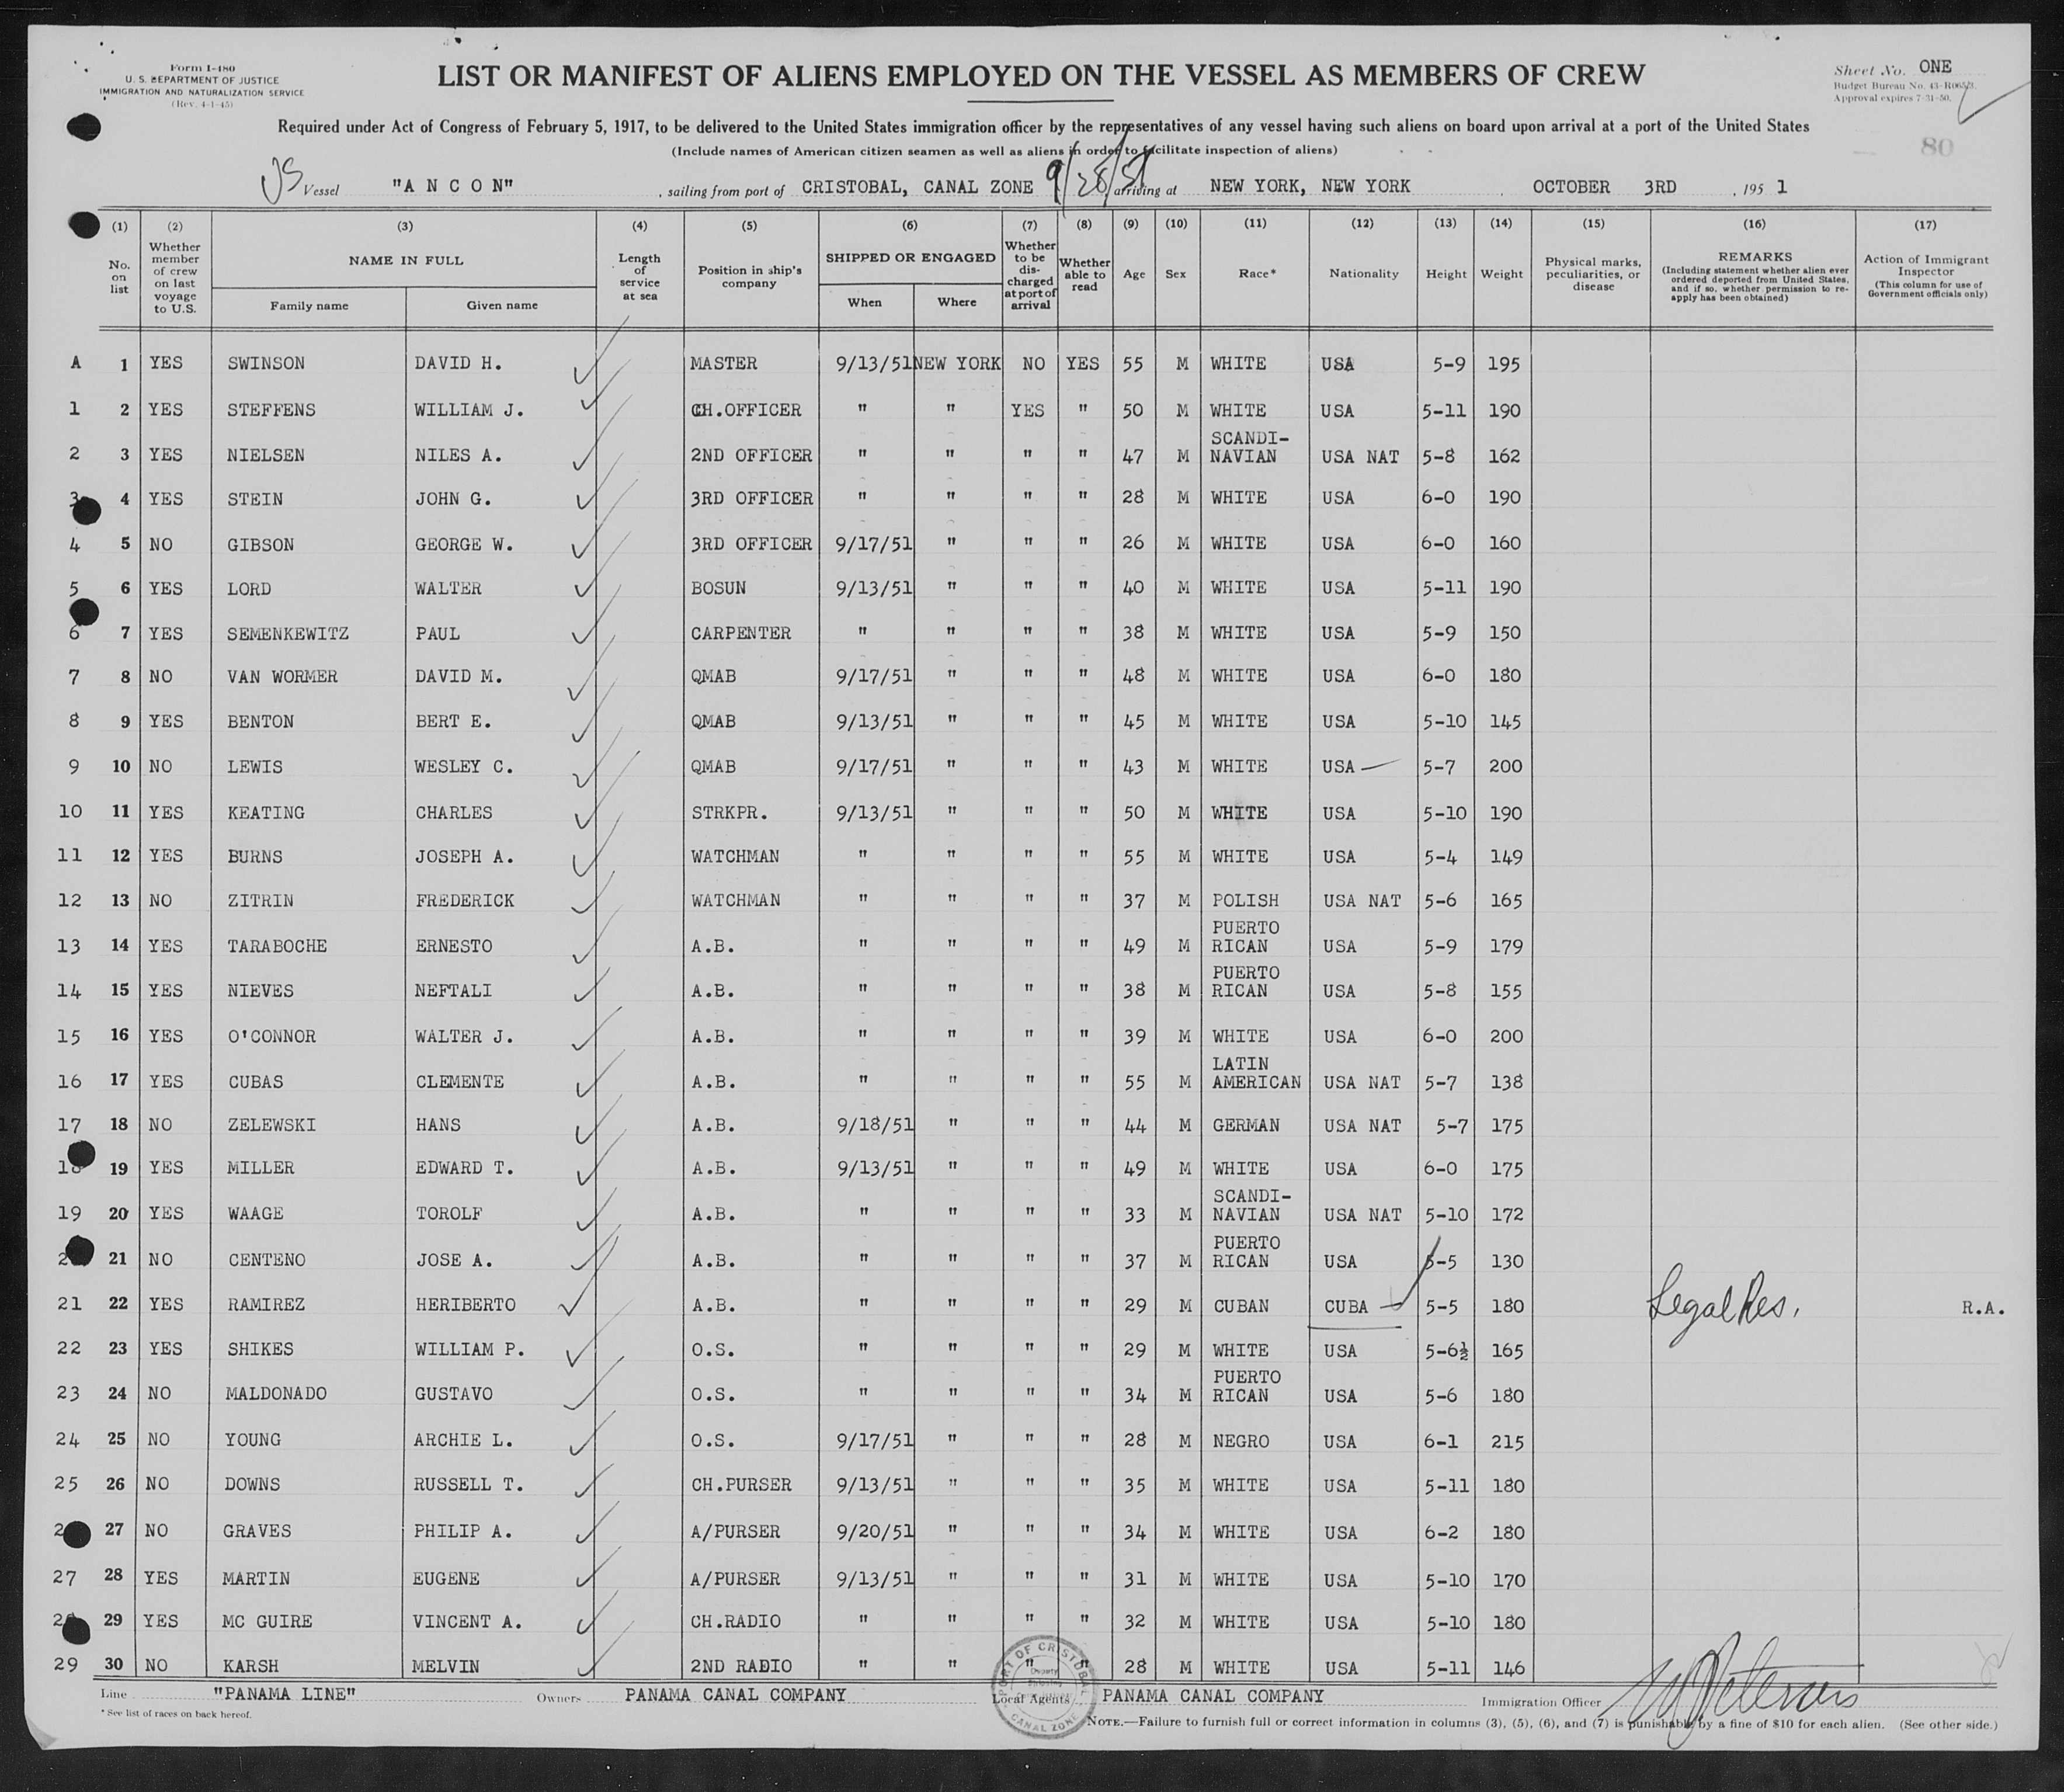 Form I-480
U. S. DEPARTMENT OF JUSTICE
IMMIGRATION AND NATURALIZATION SERVICE
(Rev. 4-1-45)
LIST OR MANIFEST OF ALIENS EMPLOYED ON THE VESSEL AS MEMBERS OF CREW
Sheet No. ONE
Budget Bureau No. 43-R065.3.
Approval expires 7-31-50.
80
Required under Act of Congress of February 5, 1917, to be delivered to the United States immigration officer by the representatives of any vessel having such aliens on board upon arrival at a port of the United States
(Include names of American citizen seamen as well as aliens in order to facilitate inspection of aliens)
US Vessel "A N C O N" , sailing from port of CRISTOBAL, CANAL ZONE 9/28/51 arriving at NEW YORK, NEW YORK , OCTOBER 3RD , 195 1
(1) (2) (3) (4) (5) (6) (7) (8) (9) (10) (11) (12) (13) (14) (15) (16) (17)
No. on list
Whether member of crew on last voyage to U.S.
NAME IN FULL
Family name Given name
Length of service at sea
Position in ship's company
SHIPPED OR ENGAGED
When Where
Whether to be discharged at port of arrival
Whether able to read
Age
Sex
Race*
Nationality
Height
Weight
Physical marks, peculiarities, or disease
REMARKS
(Including statement whether alien ever ordered deported from United States, and if so, whether permission to re-apply has been obtained)
Action of Immigrant Inspector
(This column for use of Government officials only)
A 1 YES SWINSON DAVID H. MASTER 9/13/51 NEW YORK NO YES 55 M WHITE USA 5-9 195
1 2 YES STEFFENS WILLIAM J. CH.OFFICER " " YES " 50 M WHITE USA 5-11 190
2 3 YES NIELSEN NILES A. 2ND OFFICER " " " " 47 M SCANDI-NAVIAN USA NAT 5-8 162
3 4 YES STEIN JOHN G. 3RD OFFICER " " " " 28 M WHITE USA 6-0 190
4 5 NO GIBSON GEORGE W. 3RD OFFICER 9/17/51 " " " 26 M WHITE USA 6-0 160
5 6 YES LORD WALTER BOSUN 9/13/51 " " " 40 M WHITE USA 5-11 190
6 7 YES SEMENKEWITZ PAUL CARPENTER " " " " 38 M WHITE USA 5-9 150
7 8 NO VAN WORMER DAVID M. QMAB 9/17/51 " " " 48 M WHITE USA 6-0 180
8 9 YES BENTON BERT E. QMAB 9/13/51 " " " 45 M WHITE USA 5-10 145
9 10 NO LEWIS WESLEY C. QMAB 9/17/51 " " " 43 M WHITE USA 5-7 200
10 11 YES KEATING CHARLES STRKPR. 9/13/51 " " " 50 M WHITE USA 5-10 190
11 12 YES BURNS JOSEPH A. WATCHMAN " " " " 55 M WHITE USA 5-4 149
12 13 NO ZITRIN FREDERICK WATCHMAN " " " " 37 M POLISH USA NAT 5-6 165
13 14 YES TARABOCHE ERNESTO A.B. " " " " 49 M PUERTO RICAN USA 5-9 179
14 15 YES NIEVES NEFTALI A.B. " " " " 38 M PUERTO RICAN USA 5-8 155
15 16 YES O'CONNOR WALTER J. A.B. " " " " 39 M WHITE USA 6-0 200
16 17 YES CUBAS CLEMENTE A.B. " " " " 55 M LATIN AMERICAN USA NAT 5-7 138
17 18 NO ZELEWSKI HANS A.B. 9/18/51 " " " 44 M GERMAN USA NAT 5-7 175
18 19 YES MILLER EDWARD T. A.B. 9/13/51 " " " 49 M WHITE USA 6-0 175
19 20 YES WAAGE TOROLF A.B. " " " " 33 M SCANDI-NAVIAN USA NAT 5-10 172
21 NO CENTENO JOSE A. A.B. " " " " 37 M PUERTO RICAN USA 5-5 130
21 22 YES RAMIREZ HERIBERTO A.B. " " " " 29 M CUBAN CUBA 5-5 180 Legal Res. R.A.
22 23 YES SHIKES WILLIAM P. O.S. " " " " 29 M WHITE USA 5-6½ 165
23 24 NO MALDONADO GUSTAVO O.S. " " " " 34 M PUERTO RICAN USA 5-6 180
24 25 NO YOUNG ARCHIE L. O.S. 9/17/51 " " " 28 M NEGRO USA 6-1 215
25 26 NO DOWNS RUSSELL T. CH.PURSER 9/13/51 " " " 35 M WHITE USA 5-11 180
27 NO GRAVES PHILIP A. A/PURSER 9/20/51 " " " 34 M WHITE USA 6-2 180
27 28 YES MARTIN EUGENE A/PURSER 9/13/51 " " " 31 M WHITE USA 5-10 170
29 YES MC GUIRE VINCENT A. CH.RADIO " " " " 32 M WHITE USA 5-10 180
29 30 NO KARSH MELVIN 2ND RADIO " " " " 28 M WHITE USA 5-11 146
Line "PANAMA LINE" Owners PANAMA CANAL COMPANY Local Agents PANAMA CANAL COMPANY Immigration Officer W Petersen
PORT OF CRISTOBAL
Deputy
CANAL ZONE
* See list of races on back hereof.
NOTE.—Failure to furnish full or correct information in columns (3), (5), (6), and (7) is punishable by a fine of $10 for each alien. (See other side.)